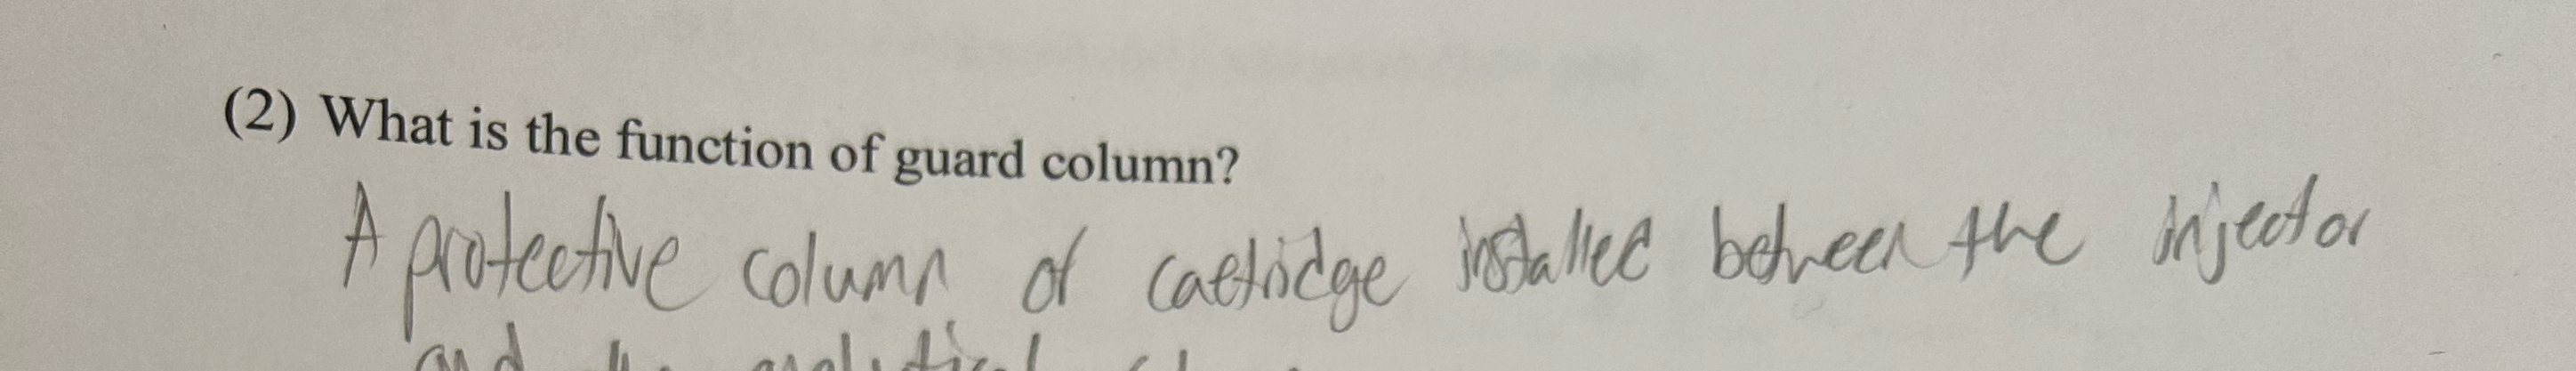 (2) What is the function of guard column?
A protective column of caetridge installed between the injector
and the analytical